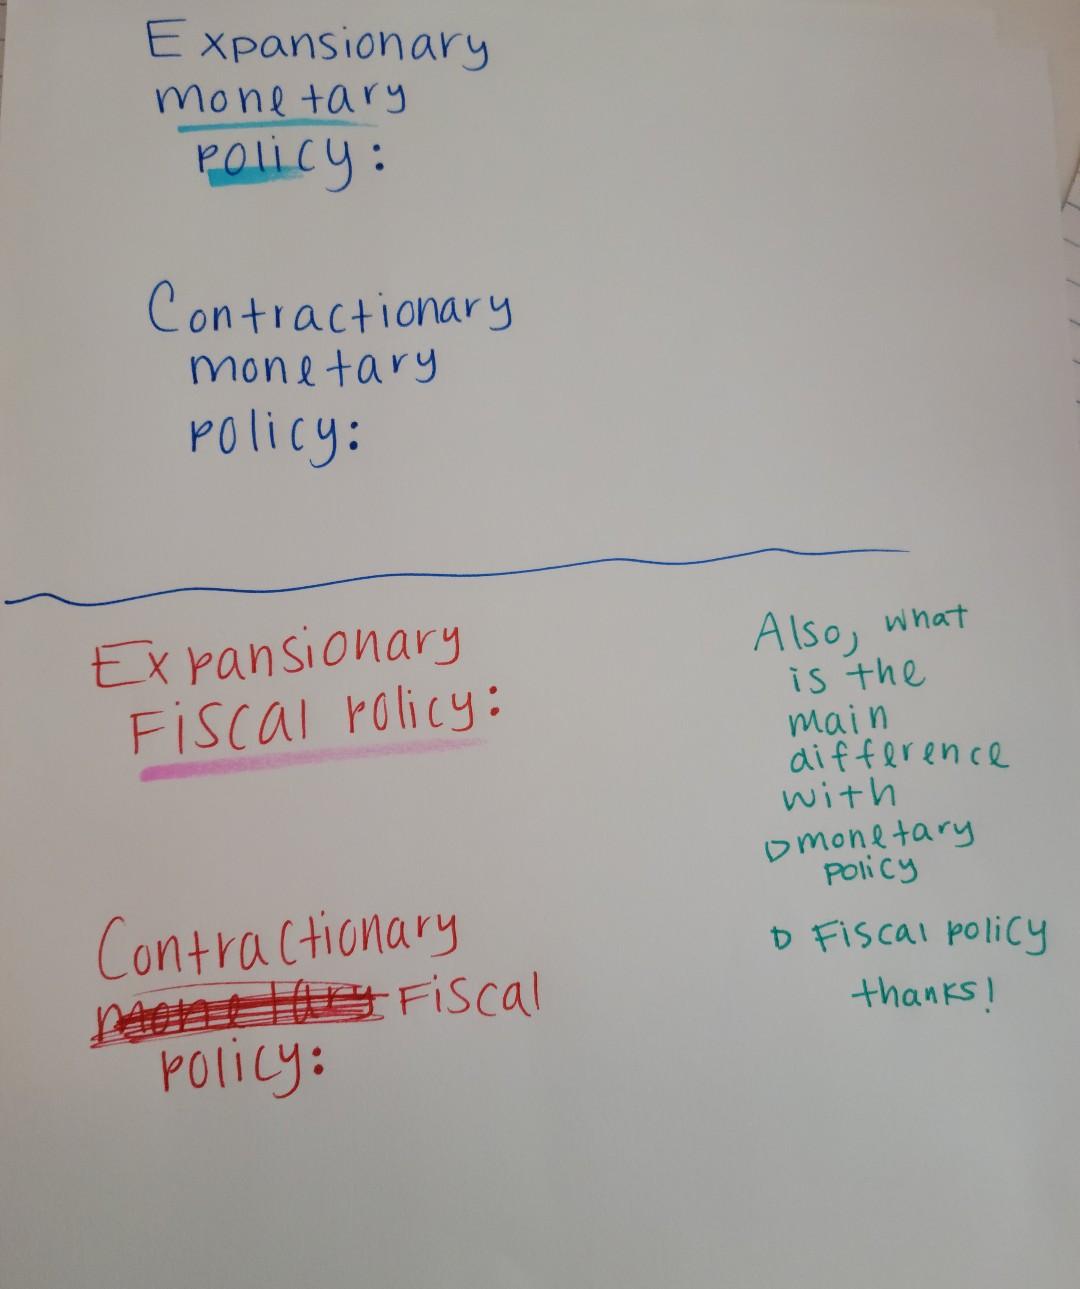 Expansionary
monetary
policy:
Contractionary
monetary
policy:
Expansionary
Fiscal policy:
Contractionary
monetary Fiscal
policy:
Also, what
is the
main
difference
with
▷ monetary
policy
▷ Fiscal policy
thanks!